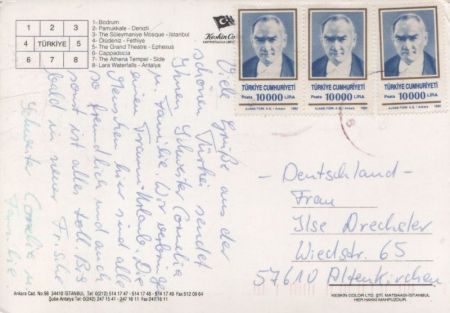 1- Bodrum
2- Pamukkale - Denizli
3- The Süleymaniye Mosque - Istanbul
4- Ölüdeniz - Fethiye
5- The Grand Theatre - Ephesus
6- Cappadocia
7- The Athena Tempel - Side
8- Lara Waterfalls - Antalya
1 2 3
4 TÜRKİYE 5
6 7 8
Keskin Color
TÜRKİYE CUMHURİYETİ
Posta 10000 LİRA
TÜRKİYE CUMHURİYETİ
Posta 10000 LİRA
TÜRKİYE CUMHURİYETİ
Posta 10000 LİRA
Viele Grüße aus der
schönen Türkei sendet
Ihnen Schwester Cornelia
u. Familie. Wir verbringen
einen Traumurlaub. Die
Menschen hier sind alle
so freundlich und auch
sonst ist alles toll. Bis
bald in neuer Frische
Schwester Cornelia u.
Familie
Deutschland
Frau
Ilse Drecheler
Wiedstr. 65
57610 Altenkirchen
Ankara Cad. No.98 34410 İSTANBUL
KESKİN COLOR LTD. ŞTİ. MATBAASI-İSTANBUL
HER HAKKI MAHFUZDUR.